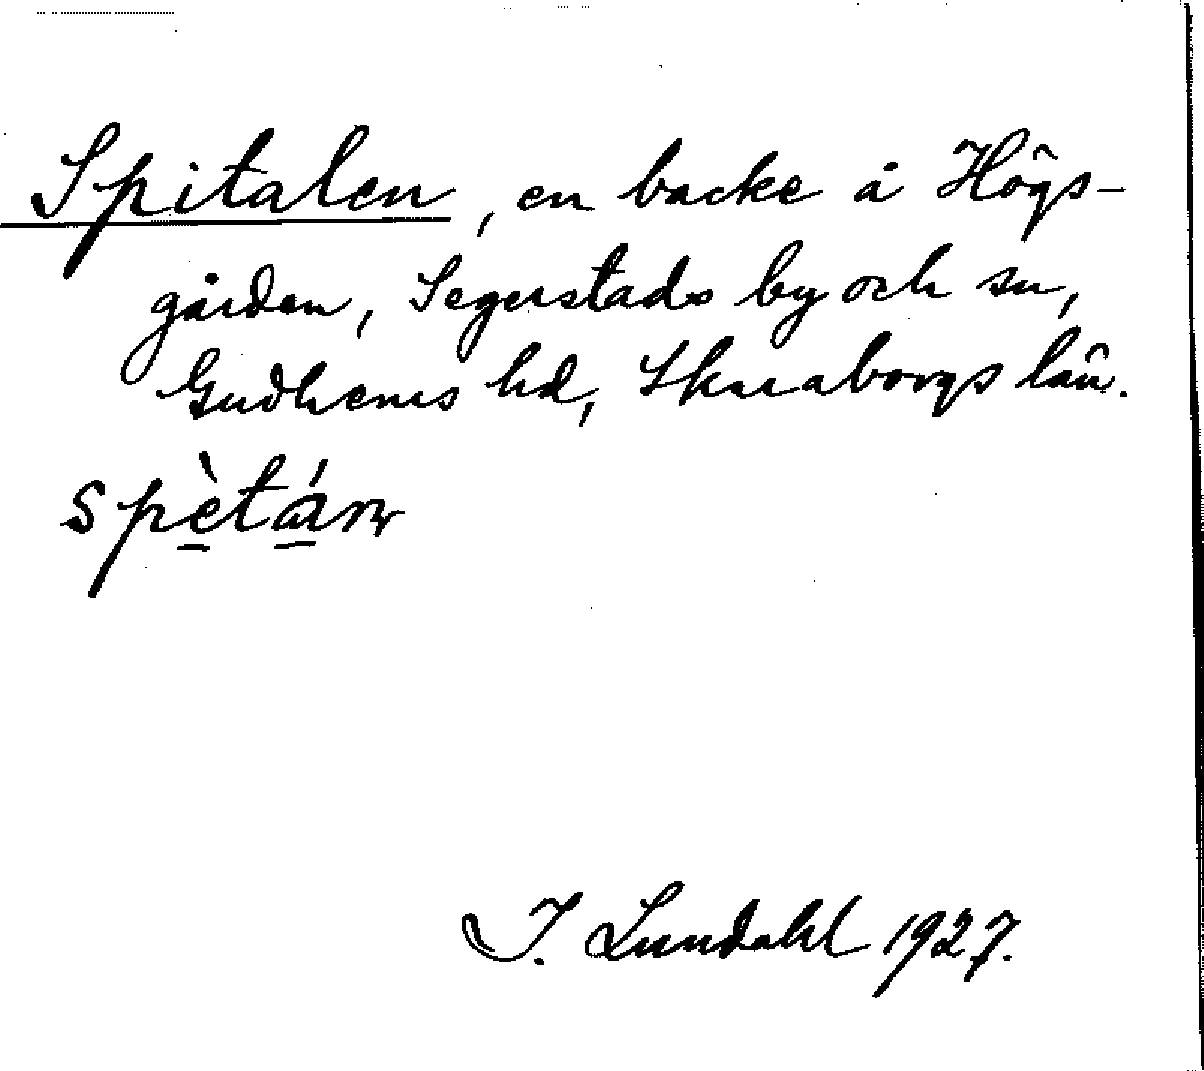 Spitalen, en backe å Högs-
gården, Segerstads by och sn,
Gudhems hd, Skaraborgs län.
spètán
I. Lundahl 1927.